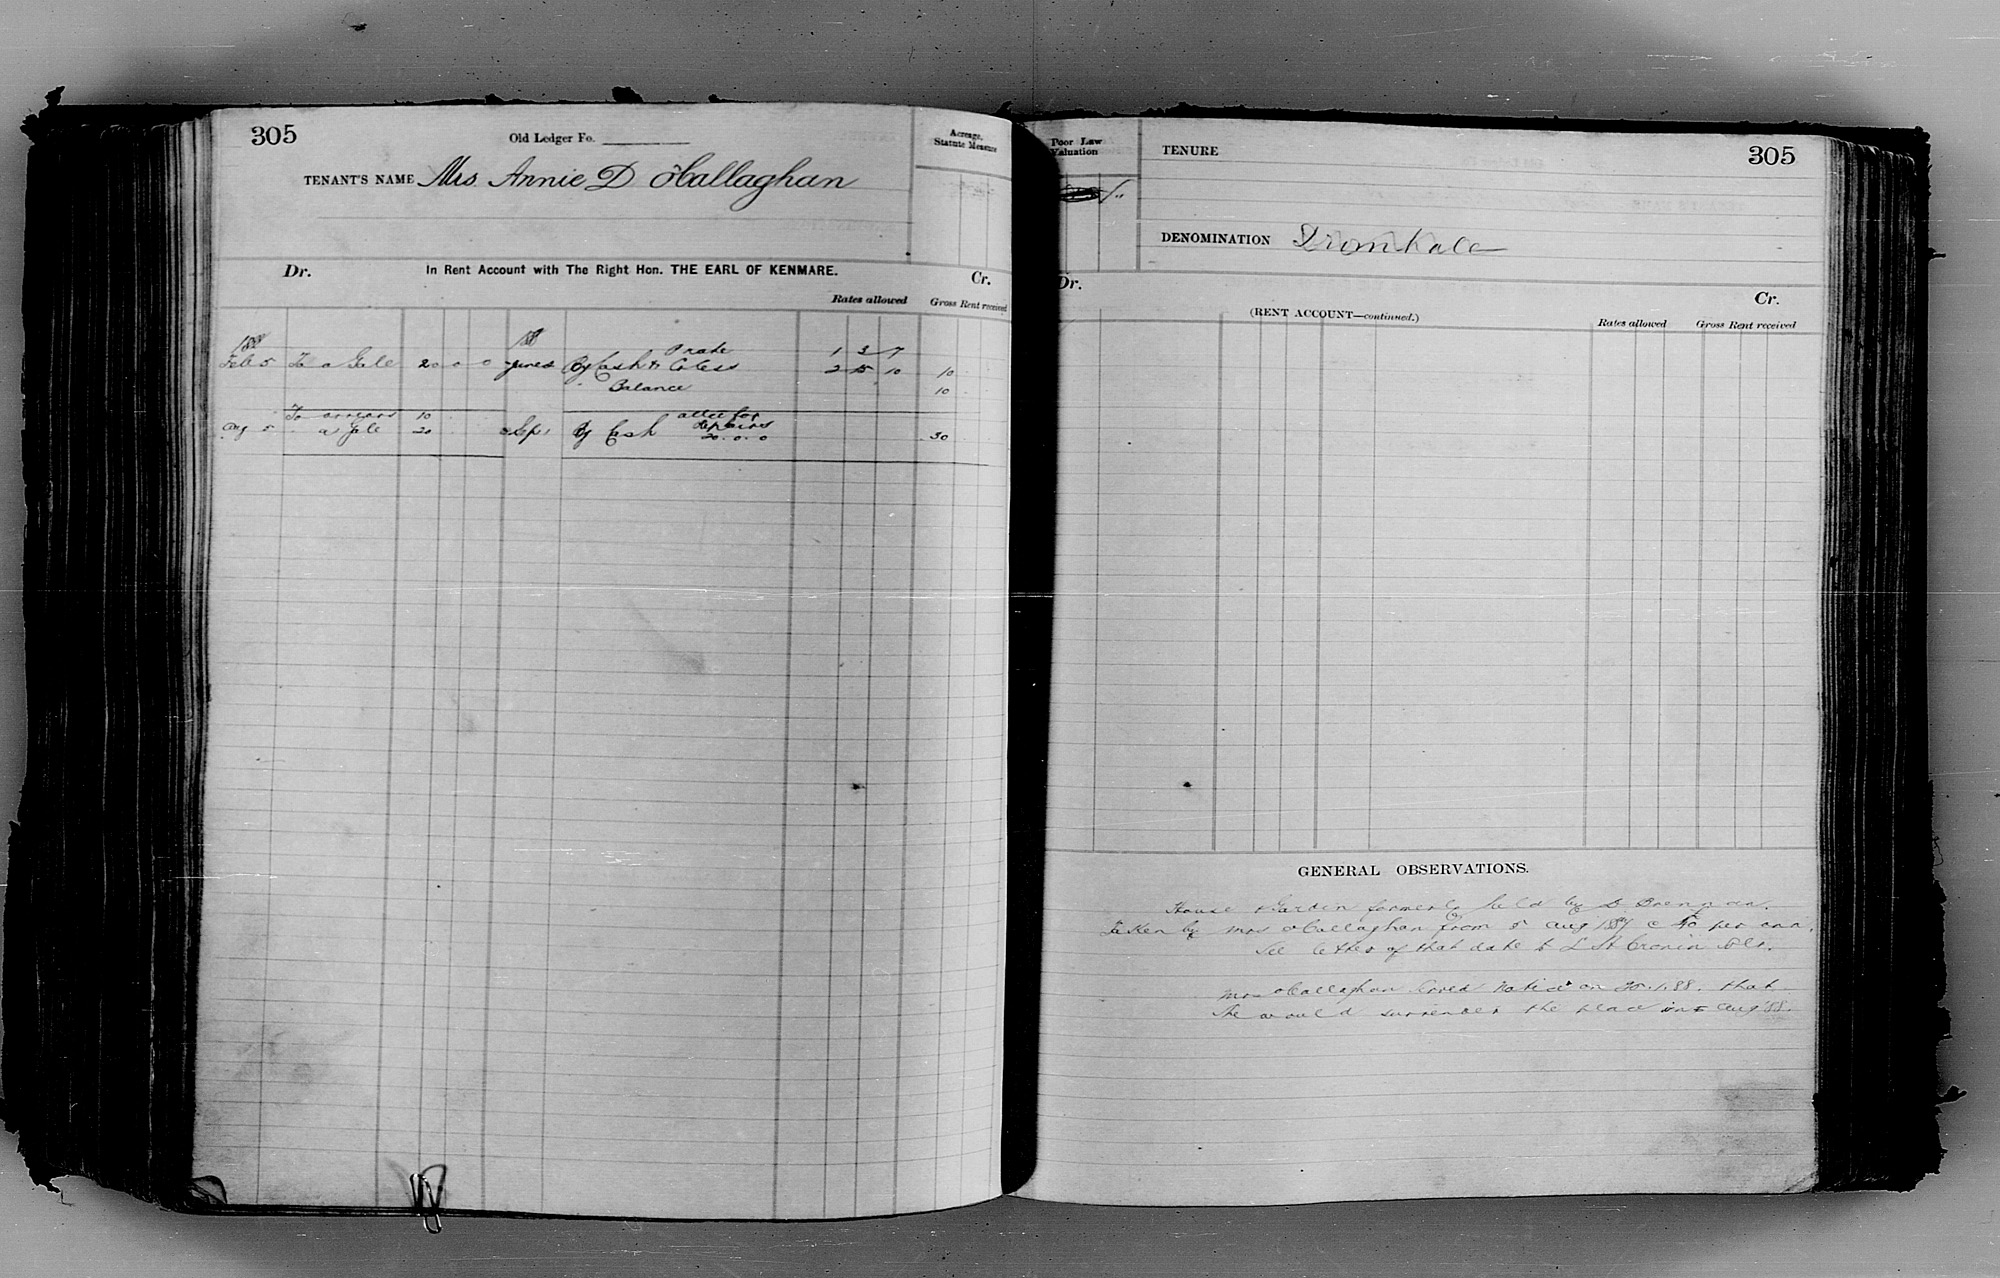 305
Old Ledger Fo.
Acreage,
Statute Measure
TENANT'S NAME Mrs. Annie D O'Callaghan
Dr. In Rent Account with The Right Hon. THE EARL OF KENMARE. Cr.
Rates allowed Gross Rent received
1888 1888
P rate 1 3 7
Feb 5 To a Gale 20 0 0 June By Cash & Co Cess 2 15 10 10
" Balance 10
To arrears 10 allce for
Aug 5 a Gale 20 Sep By Cash Repairs 30
20.0.0
Poor Law
Valuation
TENURE
305
DENOMINATION Dromkale
Dr. Cr.
(RENT ACCOUNT—continued.)
Rates allowed Gross Rent received
GENERAL OBSERVATIONS.
House & Garden formerly held by D Brennan.
Taken by Mrs O'Callaghan from 5 Aug 1887 @ 40 per ann.
See letter of that date to Cronin
Mrs O'Callaghan served Notice on 20.1.88. that
She would surrender the place in Aug '88.